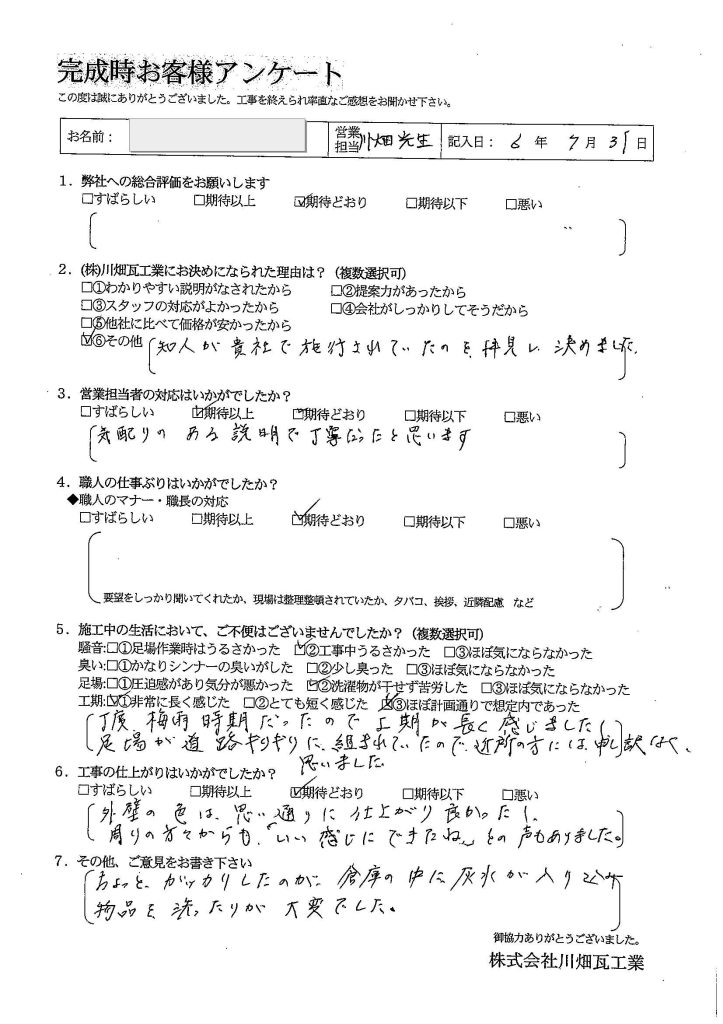 完成時お客様アンケート
この度は誠にありがとうございました。工事を終えられ率直なご感想をお聞かせ下さい。
お名前： 営業担当 川畑光生 記入日： 6 年 7 月 31 日
1．弊社への総合評価をお願いします
□すばらしい □期待以上 ☑期待どおり □期待以下 □悪い
2．(株)川畑瓦工業にお決めになられた理由は？（複数選択可）
□①わかりやすい説明がなされたから □②提案力があったから
□③スタッフの対応がよかったから □④会社がしっかりしてそうだから
□⑤他社に比べて価格が安かったから
☑⑥その他 知人が貴社で施行されていたのを、拝見し、決めました。
3．営業担当者の対応はいかがでしたか？
□すばらしい ☑期待以上 □期待どおり □期待以下 □悪い
気配りのある説明で丁寧だったと思います
4．職人の仕事ぶりはいかがでしたか？
◆職人のマナー・職長の対応
□すばらしい □期待以上 ☑期待どおり □期待以下 □悪い
要望をしっかり聞いてくれたか、現場は整理整頓されていたか、タバコ、挨拶、近隣配慮 など
5．施工中の生活において、ご不便はございませんでしたか？（複数選択可）
騒音:□①足場作業時はうるさかった ☑②工事中うるさかった □③ほぼ気にならなかった
臭い:□①かなりシンナーの臭いがした □②少し臭った □③ほぼ気にならなかった
足場:□①圧迫感があり気分が悪かった ☑②洗濯物が干せず苦労した □③ほぼ気にならなかった
工期:☑①非常に長く感じた □②とても短く感じた ☑③ほぼ計画通りで想定内であった
丁度、梅雨時期だったので工期が長く感じましたし
足場が道路ギリギリに、組まれていたので、近所の方には、申し訳なく、
思いました
6．工事の仕上がりはいかがでしたか？
□すばらしい □期待以上 ☑期待どおり □期待以下 □悪い
外壁の色は、思い通りに仕上がり良かったし、
周りの方々からも、「いい感じにできたね」との声もありました。
7．その他、ご意見をお書き下さい
ちょっと、ガッカリしたのが、倉庫の中に灰水が入り込み
物品を洗ったりが大変でした。
御協力ありがとうございました。
株式会社川畑瓦工業